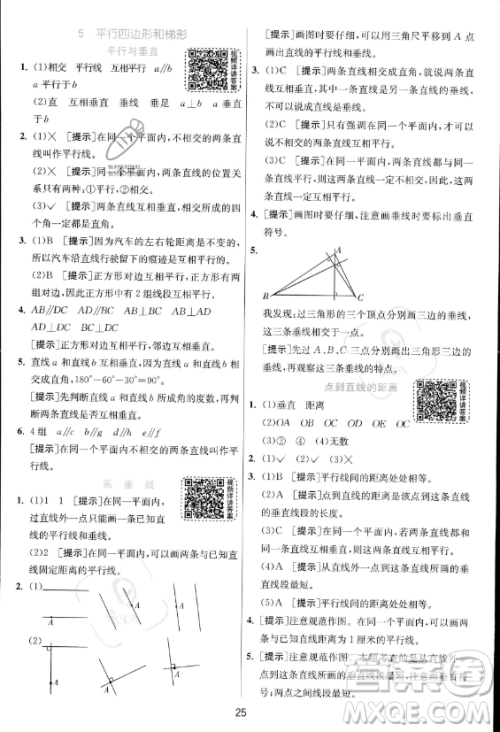 5 平行四边形和梯形
平行与垂直
视频详讲答案
1. (1)相交 平行线 互相平行 a//b
a平行于b
(2)直 互相垂直 垂线 垂足 a⊥b a垂直于b
2. (1)× [提示]在同一个平面内,不相交的两条直
线叫作平行线。
(2)× [提示]在同一个平面内,两条直线的位置关
系只有两种:①平行,②相交。
(3)✓ [提示]两条直线互相垂直,相交所成的四
个角一定都是直角。
3. (1)B [提示]因为汽车的左右轮距离是不变的,
所以汽车沿直线行驶留下的痕迹是互相平行。
(2)B [提示]正方形对边互相平行,正方形有两
组对边,因此正方形中有2组线段互相平行。
4. AB//DC AD//BC AB⊥AD AB⊥BC
AD⊥DC BC⊥DC
5. 直线a和直线b互相垂直。因为直线a和直线b相
交成的角,180°-60°-30°=90°。
[提示]先判断直线a和直线b的夹角,再判断直
线a和直线b是否互相垂直。
6. 4组 a//c b//d e//g f//h
[提示]在同一个平面内,不相交的两条直线叫作平
行线。
画垂线
视频详讲答案
1. (1)1 1 [提示]在同一个平面内,
过直线外一点只能画一条已知直
线的平行线和垂线。
(2)2 [提示]在同一个平面内,可以画两条与已知
直线固定距离的平行线。
2. (1)
A
A
(2)
A
A
[提示]画图时要仔细,可以用三角尺平移到又A
点画出直线的平行线和垂线。
3. (1)C [提示]两条直线相交成直角,就说这两条直
线互相垂直,其中一条直线是另一条直线的垂线,
不可以说某条直线是垂线。
(2)C [提示]只有强调在同一个平面内,两条不
相交的直线才一定互相平行。
(3)C [提示]同一平面内,两条直线同时和第三
条直线平行,则这两条直线一定互相平行。两条直
线同时和第三条直线垂直,则这两条直线一定互相
平行。
4. [提示]画图时要仔细,注意画垂线时要标出垂直
符号。
5.
A
B
C
我发现:过三角形的三个顶点分别画三边的垂线,
这三条垂线相交于一点。
[提示]先过A、B、C三点分别画出三条边的垂线,
再观察这三条垂线的特点。
点到直线的距离
视频详讲答案
1. (1)垂直 距离
(2)OA OB OC OD OE OC
(3)② ④ (4)无数
2. (1)✓ (2)✓ (3)×
3. (1)A [提示]平行线间的距离处处相等。
(2)A [提示]点到直线的距离就是点到直线的
垂直线段的长度。
(3)B [提示]平行线间的距离处处相等。
(4)B [提示]直线外一点到已知直线的距离中
垂直线段最短。
(5)A [提示]平行线间的距离处处相等。
4. [提示]注意规范作图。在同一平面内,可以画两
条与已知直线距离为1厘米的平行线。
5. [提示]注意规范作图,
点到这条直线的距离中垂直线段最短,注意标出垂直符
号;两点之间线段最短。
25
答案圈
MXQE.COM